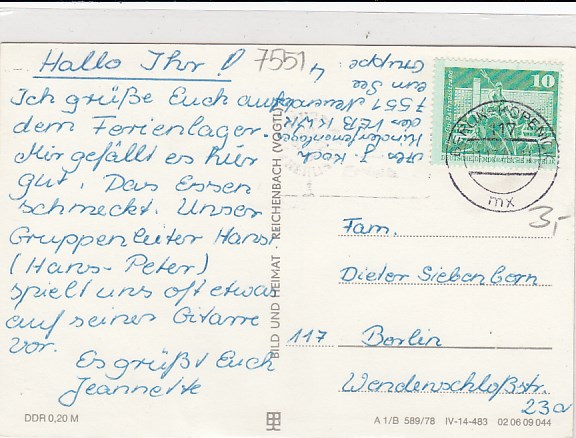 Hallo Ihr!
7551
Ich grüße Euch aus
dem Ferienlager.
Mir gefällt es hier
gut. Das Essen
schmeckt. Unser
Gruppenleiter Hans
(Hans-Peter)
spielt uns oft etwas
auf seiner Gitarre
vor.
Es grüßt Euch
Jeannette
J. Koch
Kinderferienlager
des VEB
7551
am See
Gruppe: 4
10
DEUTSCHE DEMOKRATISCHE REPUBLIK
BERLIN-KÖPENICK
mx
3,-
Fam.
Dieter Siebenborn
117 Berlin
Wendenschloßstr.
23a
BILD UND HEIMAT REICHENBACH (VOGTL)
DDR 0,20 M
A 1/B 589/78 IV-14-483 02 06 09 044